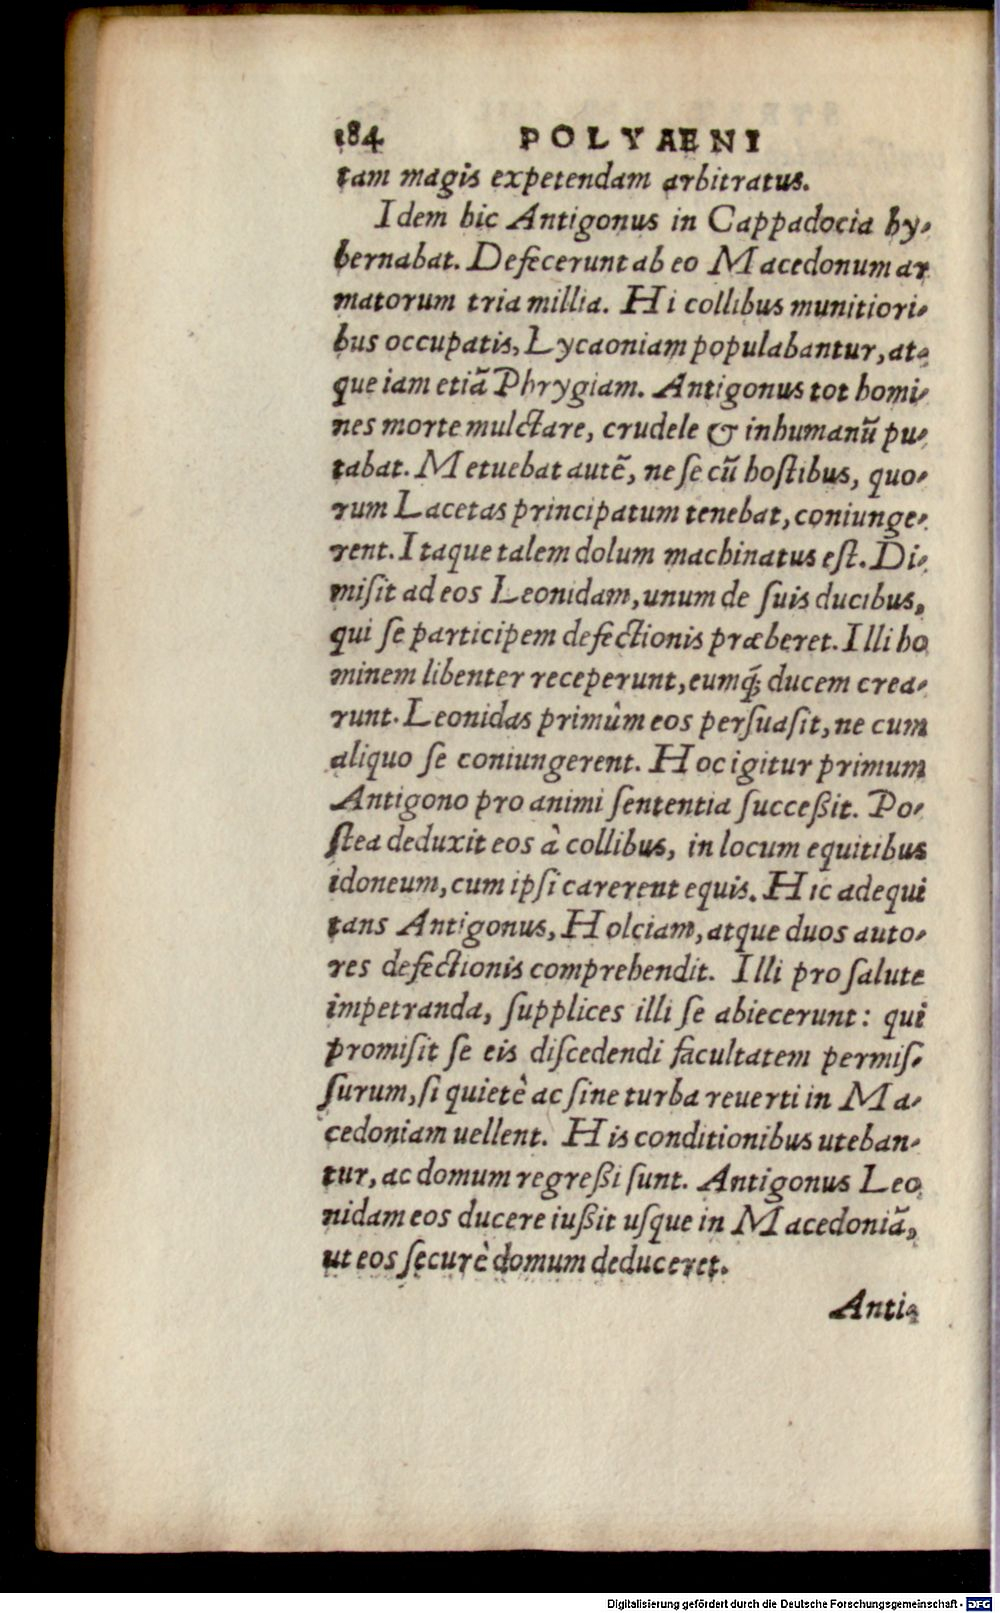 184 POLYAENI
tam magis expetendam arbitratus.
Idem hic Antigonus in Cappadocia hy-
bernabat. Defecerunt ab eo Macedonum ar
matorum tria millia. Hi collibus munitiori-
bus occupatis, Lycaoniam populabantur, at-
que iam etiã Phrygiam. Antigonus tot homi-
nes morte mulctare, crudele & inhumanũ pu-
tabat. Metuebat autẽ, ne se cũ hostibus, quo-
rum Lacetas principatum tenebat, coniunge-
rent. Itaque talem dolum machinatus est. Di-
misit ad eos Leonidam, unum de suis ducibus,
qui se participem defectionis præberet. Illi ho
minem libenter receperunt, eumq́; ducem crea-
runt. Leonidas primùm eos persuasit, ne cum
aliquo se coniungerent. Hoc igitur primum
Antigono pro animi sententia succeßit. Po-
stea deduxit eos à collibus, in locum equitibus
idoneum, cum ipsi carerent equis. Hic adequi
tans Antigonus, Holciam, atque duos auto-
res defectionis comprehendit. Illi pro salute
impetranda, supplices illi se abiecerunt: qui
promisit se eis discedendi facultatem permis-
surum, si quietè ac sine turba reuerti in Ma-
cedoniam uellent. His conditionibus uteban-
tur, ac domum regreßi sunt. Antigonus Leo
nidam eos ducere iußit usque in Macedoniã,
ut eos securè domum deduceret.
Anti-
Digitalisierung gefördert durch die Deutsche Forschungsgemeinschaft - DFG